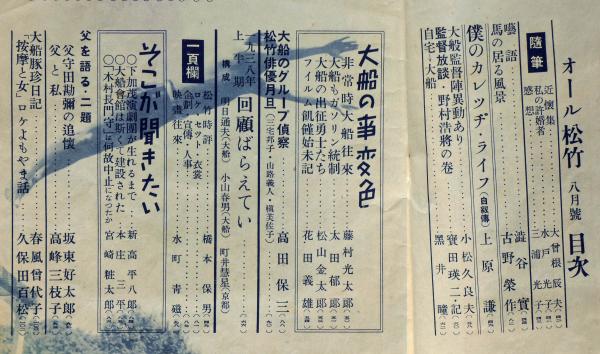 オール松竹 八月號 目次
隨筆
近懷集 大曾根辰夫
私の許婚者 水戸光子
感想 三浦光子
囈語 澁谷實
馬の居る風景 古野榮作
僕のカレッヂ・ライフ(自敍傳) 上原謙
大船監督陣異動あり 小松久良夫
監督放談・野村浩將の卷 寶田瑛二・記
自宅→大船 黑井瞳
大船の事変色
非常時大船往來 藤村光太郎
大船もガソリン統制 太田郁郎
大船の出征勇士たち 松山金太郎
フイルム飢饉始末記 花田義雄
大船のグループ偵察 高田保三
松竹俳優月旦(三宅邦子・山路義人・槇芙佐子)
一九三八年上半期 回顧ばらえてい
構成 明日通夫(大船) 小山春男(大船) 町井彗星(京都)
一頁欄
松竹時評 橋本保男
ロケ・セット・衣裳
企劃・宣傳・人事
映畫往來 水町青磁
そこが聞きたい
〇下加茂演劇團が生れるまで 新高平八郎
〇大船會館は斯くて建設された 本庄三平
〇「木村長門守」は何故中止になつたか 宮崎粧太郎
父を語る・二題
父守田勘彌の追懷 坂東好太郎
父と私 高峰三枝子
大船豚珍日記 春風曾代子
「按摩と女」ロケよもやま話 久保田百松